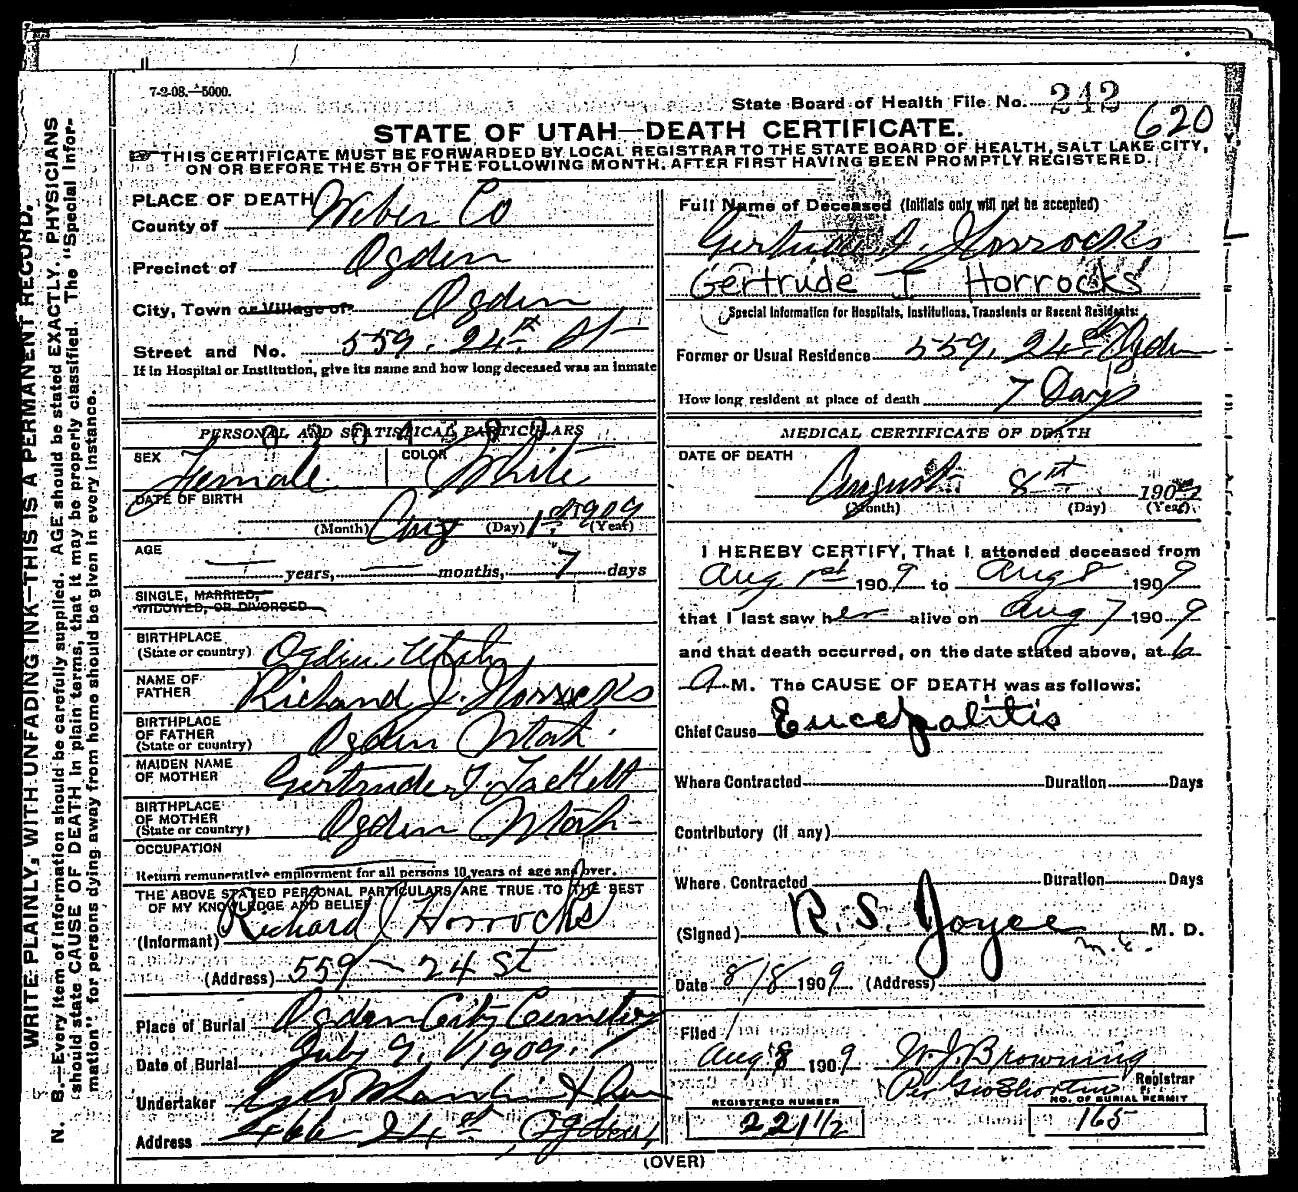 7-2-08.—5000.
State Board of Health File No. 242
620
STATE OF UTAH—DEATH CERTIFICATE.
THIS CERTIFICATE MUST BE FORWARDED BY LOCAL REGISTRAR TO THE STATE BOARD OF HEALTH, SALT LAKE CITY,
ON OR BEFORE THE 5TH OF THE FOLLOWING MONTH, AFTER FIRST HAVING BEEN PROMPTLY REGISTERED.
WRITE PLAINLY, WITH UNFADING INK—THIS IS A PERMANENT RECORD.
N. B.—Every item of information should be carefully supplied. AGE should be stated EXACTLY. PHYSICIANS
should state CAUSE OF DEATH in plain terms, that it may be properly classified. The "Special Infor-
mation" for persons dying away from home should be given in every instance.
PLACE OF DEATH
County of Weber Co
Precinct of Ogden
City, Town or Village of Ogden
Street and No. 559. 24th St
If in Hospital or Institution, give its name and how long deceased was an inmate
PERSONAL AND STATISTICAL PARTICULARS
SEX Female COLOR White
DATE OF BIRTH
(Month) Aug (Day) 1st 1909 (Year)
AGE
years, months, 7 days
SINGLE, MARRIED,
WIDOWED, OR DIVORCED
BIRTHPLACE
(State or country) Ogden Utah
NAME OF
FATHER Richard J. Horrocks
BIRTHPLACE
OF FATHER
(State or country) Ogden Utah
MAIDEN NAME
OF MOTHER Gertrude T. Tackett
BIRTHPLACE
OF MOTHER
(State or country) Ogden Utah
OCCUPATION
Return remunerative employment for all persons 10 years of age and over.
THE ABOVE STATED PERSONAL PARTICULARS ARE TRUE TO THE BEST
OF MY KNOWLEDGE AND BELIEF
(Informant) Richard J Horrocks
(Address) 559 — 24 St
Place of Burial Ogden City Cemetery
Date of Burial July 9, 1909.
Undertaker
Address 466 24th St, Ogden,
Full Name of Deceased (Initials only will not be accepted)
Gertrude I. Horrocks
Gertrude I Horrocks
Special Information for Hospitals, Institutions, Transients or Recent Residents:
Former or Usual Residence 559. 24th Ogden
How long resident at place of death 7 Days
MEDICAL CERTIFICATE OF DEATH
DATE OF DEATH
August 8th 1909
(Month) (Day) (Year)
I HEREBY CERTIFY, That I attended deceased from
Aug 1st 1909 to Aug 8 1909
that I last saw her alive on Aug 7 1909
and that death occurred, on the date stated above, at 6
A M. The CAUSE OF DEATH was as follows:
Chief Cause Encephalitis
Where Contracted Duration Days
Contributory (if any)
Where Contracted Duration Days
(Signed) R. S. Joyce M. D.
Date 8/8 1909 (Address)
Filed
Aug 8 1909 W. J. Browning
Per Registrar
REGISTERED NUMBER
221 1/2
NO. OF BURIAL PERMIT
165
(OVER)